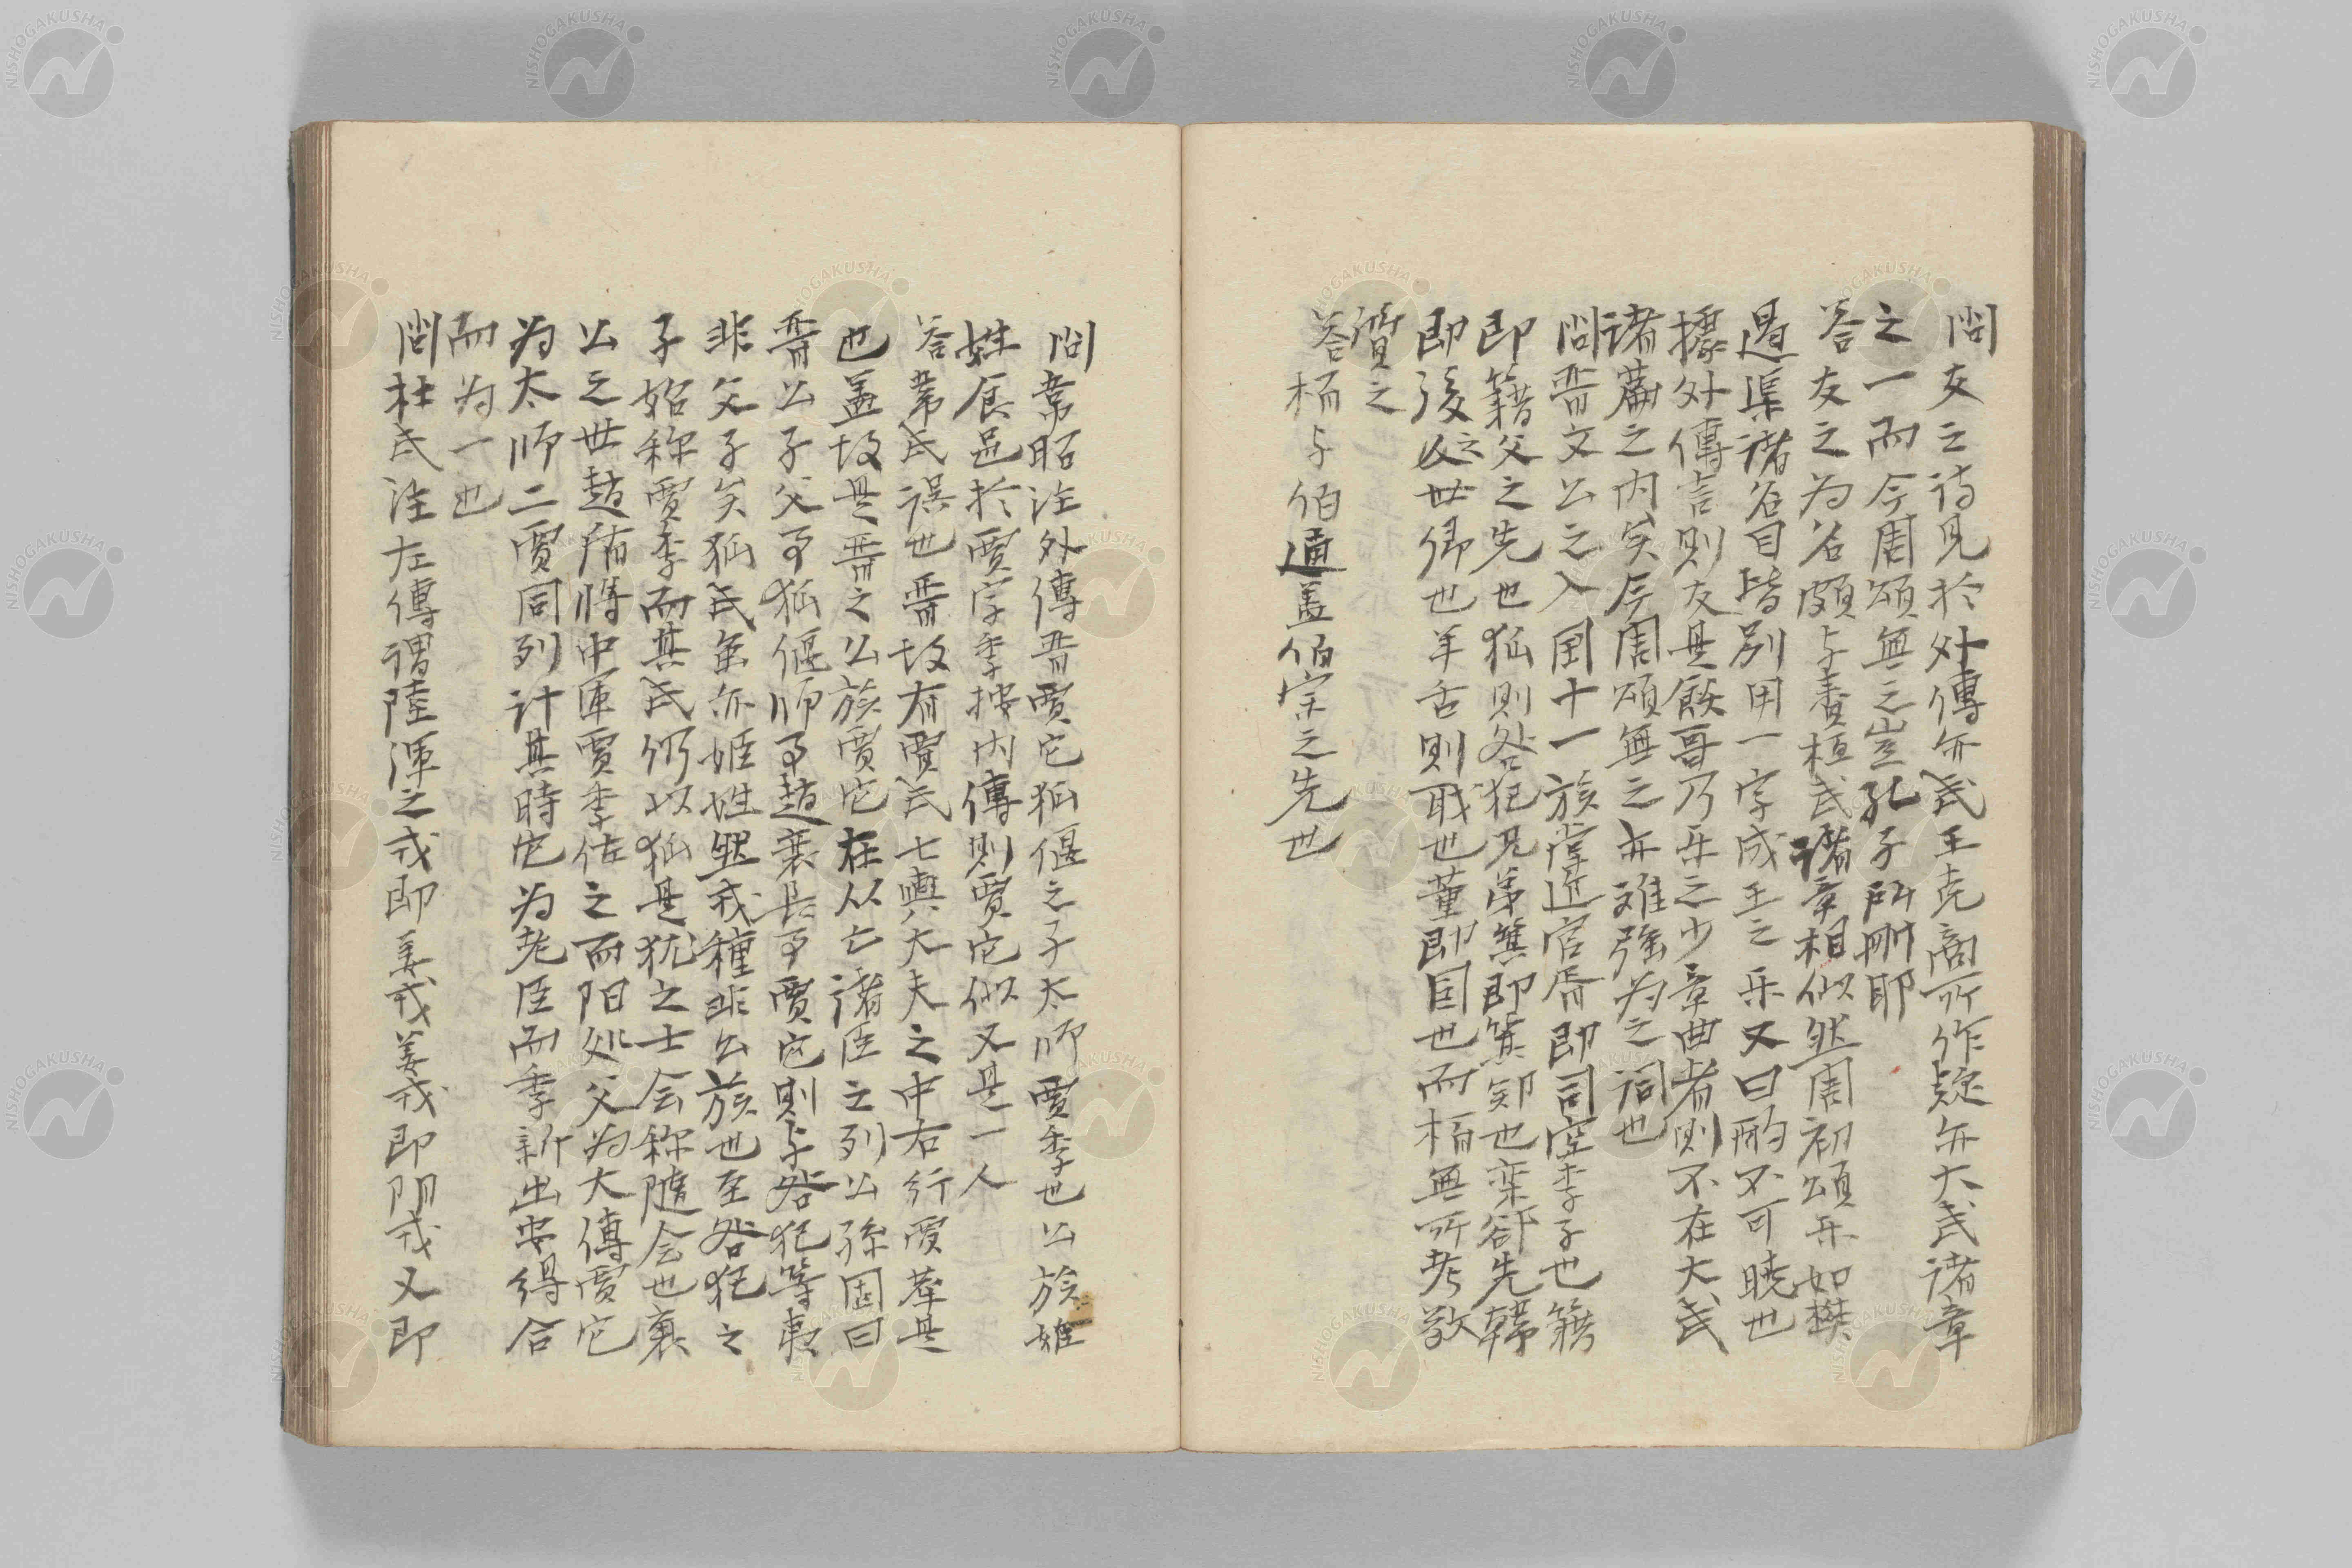 問支之詩見於外傳亦武王克商所作疑亦大武諸章
之一而今周頌無之豈孔子所刪耶
答支之為名頗与賚桓武諸章相似然周初頌樂如樊
遏渠諸名目皆別用一字成王之樂又曰酌不可曉也
據外傳言則支是飫哥乃樂之少章曲者則不在大武
諸篇之内矣今周頌無之亦難強為之詞也
問晋文公之入国十一族掌近官胥即司空季子也籍
即籍父之先也狐則咎犯兄弟箕即箕鄭也欒郤先韓
即後之世卿也羊舌則職也董即因也而栢無所考敢
質之
答栢与伯通蓋伯宗之先世
問韋昭注外傳晋賈它狐偃之子太師賈季也公族姫
姓食邑於賈字季按内傳則賈它似又是一人
答韋氏誤也晋故有賈氏七輿大夫之中右行賈華是
也蓋故是晋之公族賈它在从亡諸臣之列公孫固曰
晋公子父事狐偃師事趙衰長事賈它則与咎犯等夷
非父子矣狐氏虽亦姫姓然戎種非公族也至咎犯之
子始称賈季而其氏仍以狐是犹之士会称随会也襄
公之世趙盾將中軍賈季佐之而阳处父為大傅賈它
為太师二賈同列計其時它為老臣而季新出安得合
而為一也
問杜氏注左傳謂陸渾之戎即姜戎姜戎即阴戎又即